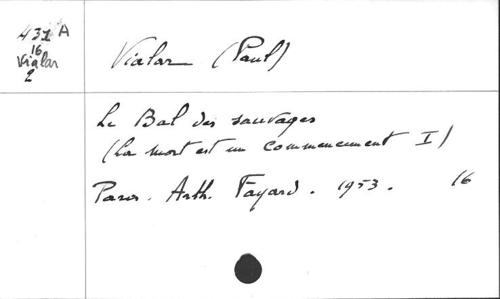 431 A
16
Vialar
2
Vialar (Paul)
Le Bal des sauvages
(La mort est un commencement I)
Paris. Arth. Fayard. 1953. 16